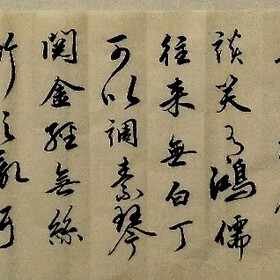 談笑有鴻儒
往来無白丁
可以調素琴
閱金經無絲
竹之亂耳